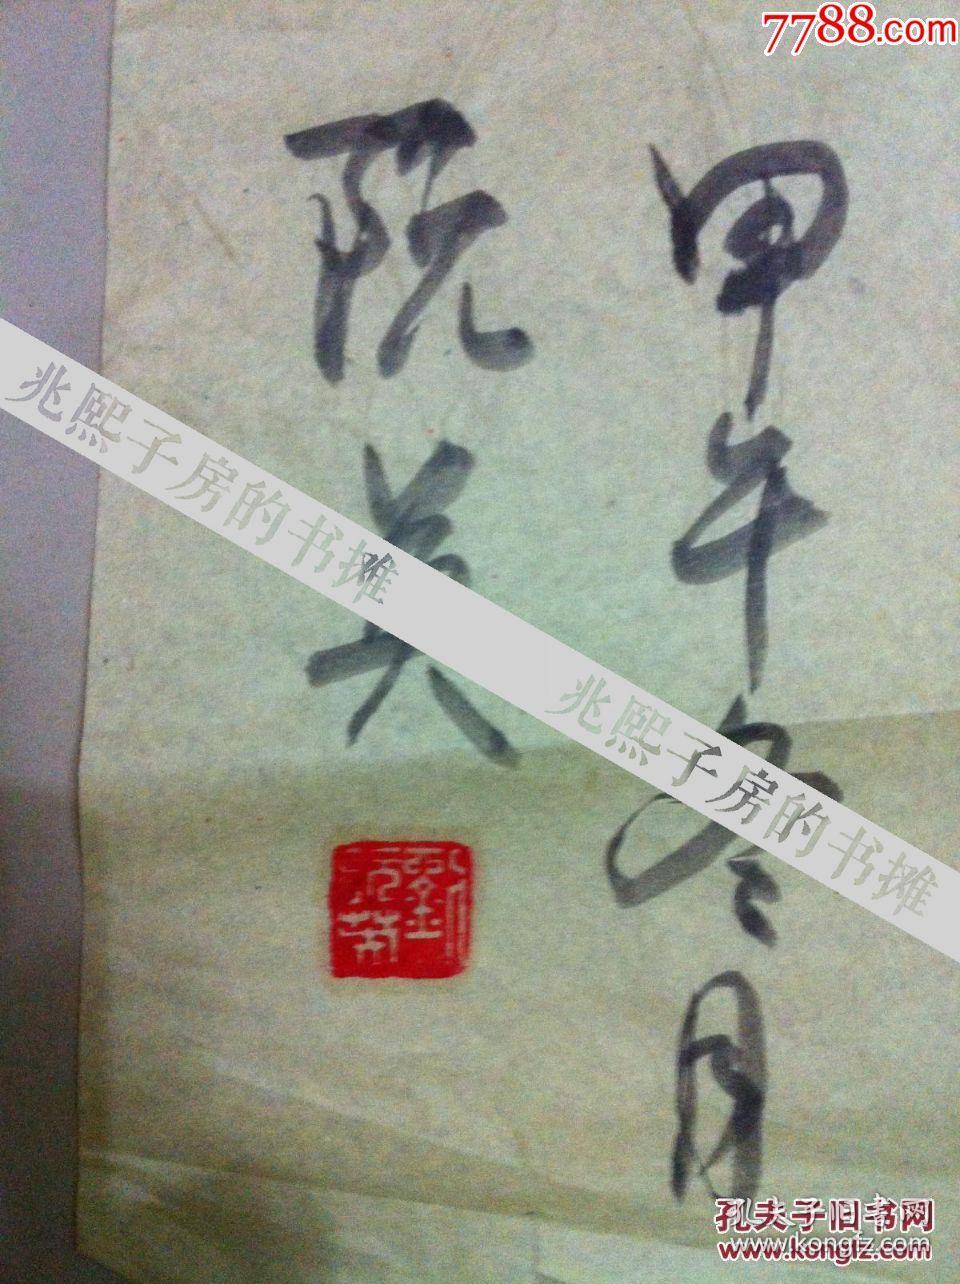 7788.com
甲午冬月
阮英
兆熙子房的书摊
兆熙子房的书摊
孔夫子旧书网
www.kongfz.com